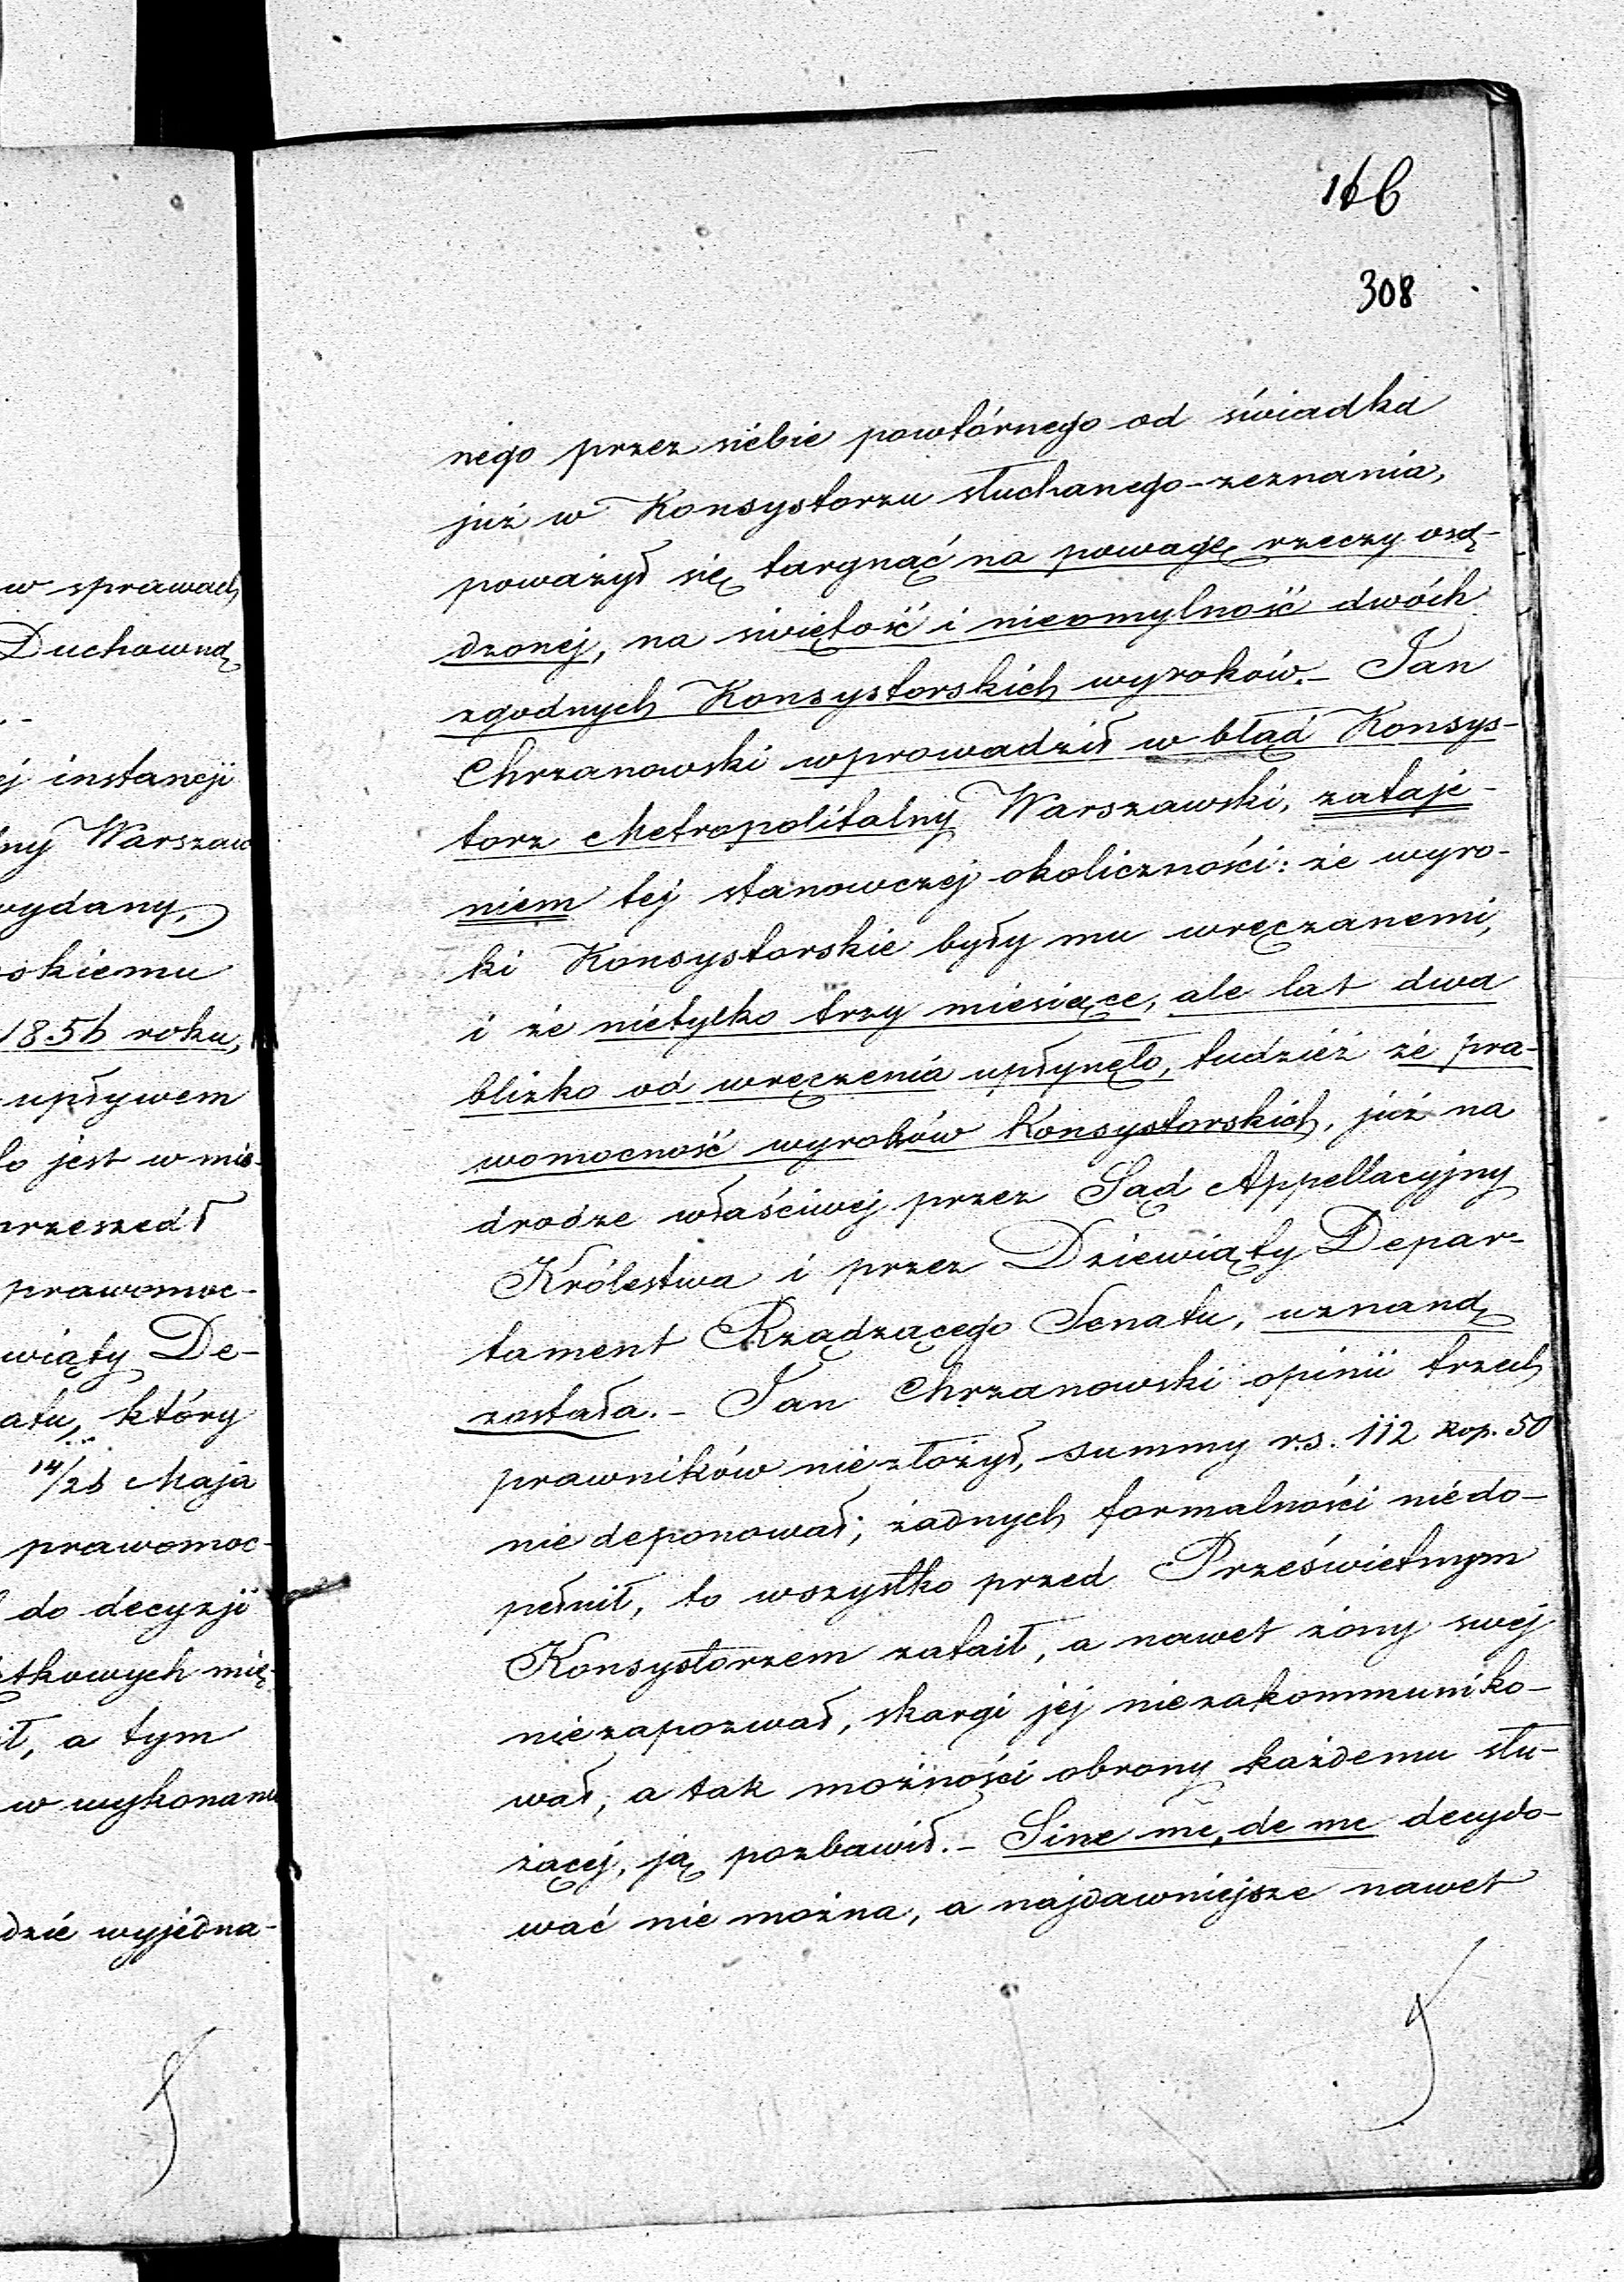 w sprawach
Duchowną
ej instancji
lny Warszaw
wydany,
skiemu
1856 roku,
upływem
to jest w mie-
przeszedł
prawomoc-
wiąty De-
atu, który
14/26 Maja
prawomoc-
do decyzji
ątkowych mię-
ił, a tym
w wykonaniu
dzie wyjedna-
166
308
nego przez siebie powtórnego od świadka
już w Konsystorzu słuchanego-zeznania,
poważył się targnąć na powagę rzeczy osą-
dzonej, na świętość i nieomylność dwóch
zgodnych Konsystorskich wyroków.- Jan
Chrzanowski wprowadził w błąd Konsys-
torz Metropolitalny Warszawski, zataje-
niem tej stanowczej okoliczności: że wyro-
ki Konsystorskie były mu wręczanemi,
i że nietylko trzy miesiące, ale lat dwa
blizko od wręczenia upłynęło, tudzież że pra-
womocność wyroków Konsystorskich, już na
drodze właściwej przez Sąd Appellacyjny
Królestwa i przez Dziewiąty Depar-
tament Rządzącego Senatu, uznaną
została.- Jan Chrzanowski opinii trzech
prawników niezłożył, summy r.s. 112 kop. 50
nie deponował; żadnych formalności niedo-
pełnił, to wszystko przed Prześwietnym
Konsystorzem zataił, a nawet żony swej
niezapozwał, skargi jej niezakommuniko-
wał, a tak możności obrony każdemu słu-
żącej, ją pozbawił.- Sine me, de me decydo-
wać nie można, a najdawniejsze nawet